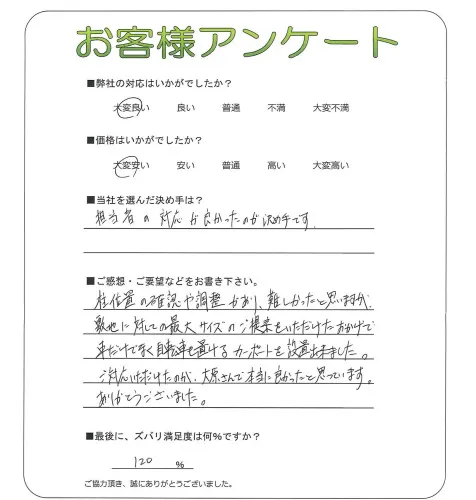 お客様アンケート
■弊社の対応はいかがでしたか?
大変良い 良い 普通 不満 大変不満
■価格はいかがでしたか?
大変安い 安い 普通 高い 大変高い
■当社を選んだ決め手は?
担当者の対応が良かったのが決め手です。
■ご感想・ご要望などをお書き下さい。
柱位置の確認や調整があり、難しかったと思いますが、
敷地に対しての最大サイズのご提案をいただけたおかげで
車だけでなく自転車も置けるカーポートを設置出来ました。
ご対応いただけたのが、大原さんで本当に良かったと思っています。
ありがとうございました。
■最後に、ズバリ満足度は何%ですか?
120 %
ご協力頂き、誠にありがとうございました。